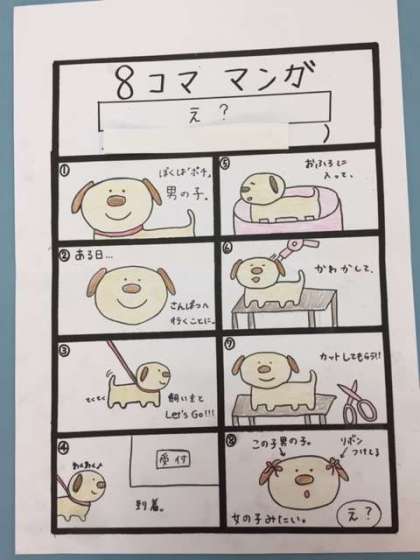 8コマ マンガ
え?
)
①
ぼくは"ポチ。
男の子。
②
ある日…
さんぱつへ
行くことに。
③
てくてく
飼い主と
Let's Go!!!
④
わんわん♪
受付
到着。
⑤
おふろに
入って、
⑥
かわかして、
⑦
カットしてもらう!!
⑧
この子男の子。
リボン
つけてる
女の子みたい。
え?